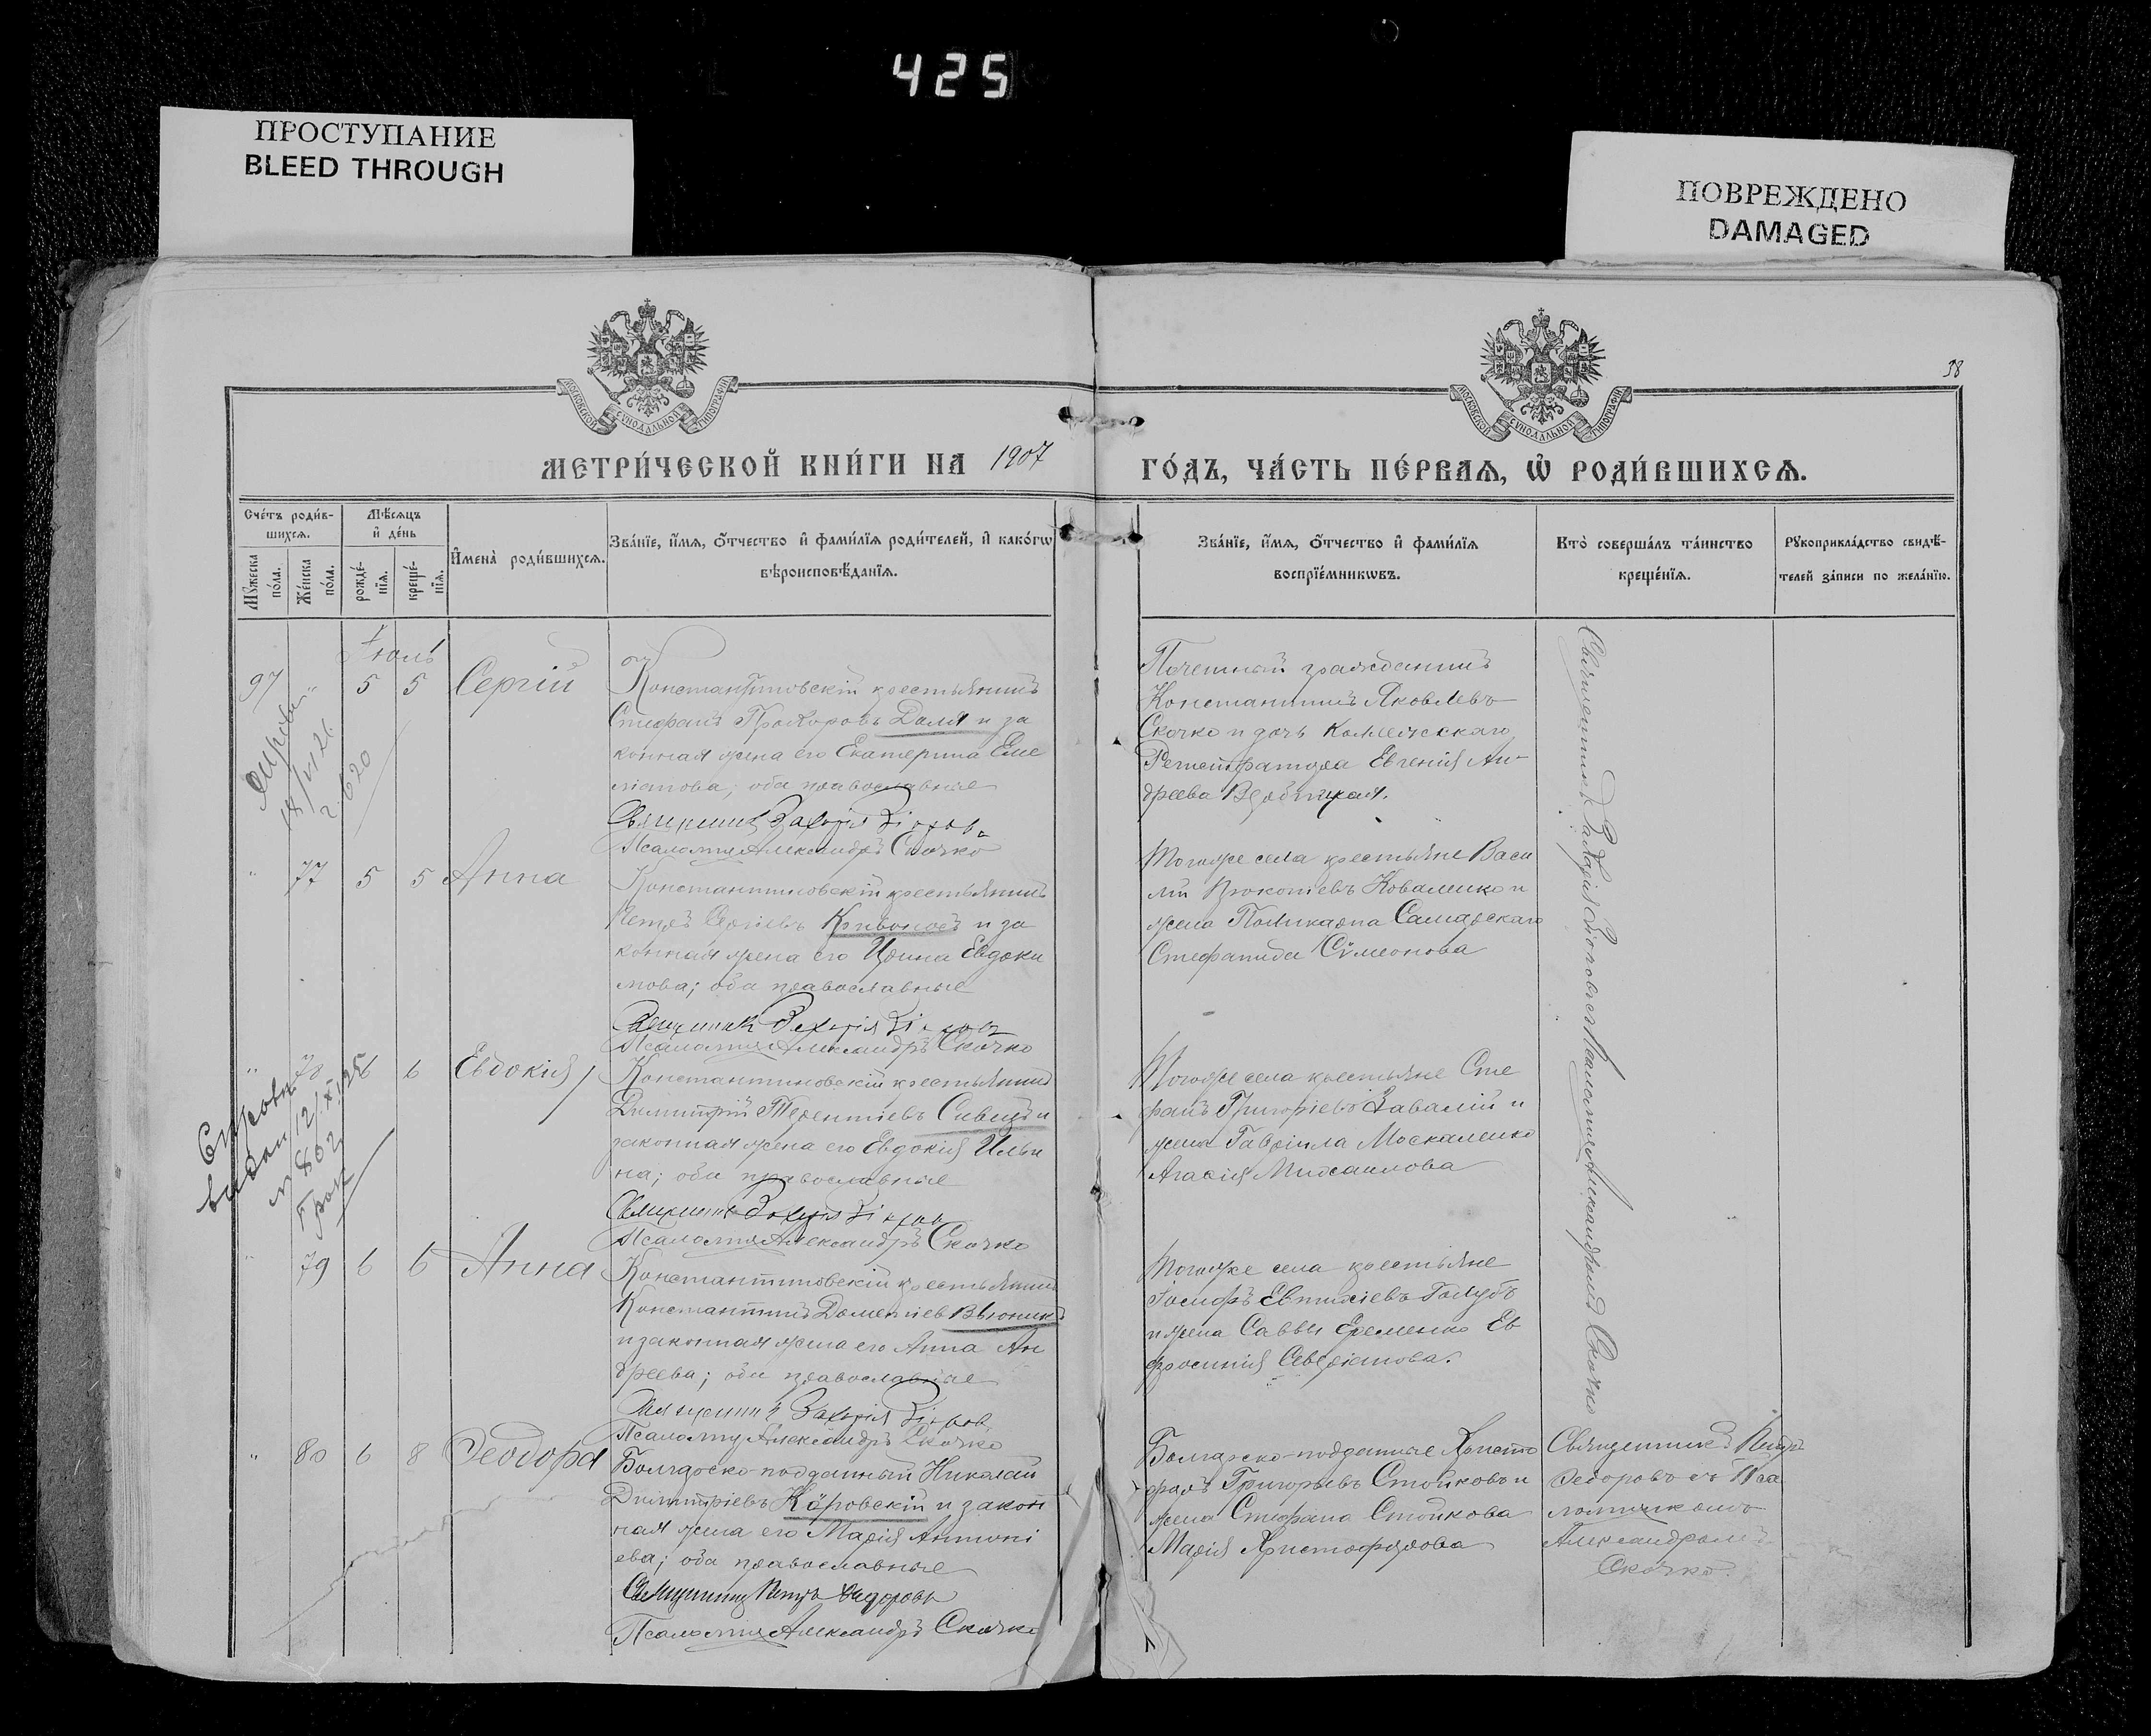 425
ПРОСТУПАНИЕ
BLEED THROUGH
ПОВРЕЖДЕНО
DAMAGED
38
МОСКОВСКОЙ СѴНОДАЛЬНОЙ ТИПОГРАФІИ
МОСКОВСКОЙ СѴНОДАЛЬНОЙ ТИПОГРАФІИ
МЕТРИ́ЧЕСКОЙ КНИ́ГИ НА 1907
ГО́ДЪ, ЧА́СТЬ ПЕ́РВАѦ, Ѡ҆ РОДИ́ВШИХСѦ.
Сче́тъ роди́в-
шихсѧ.
Мꙋ́жеска по́ла.
Же́нска по́ла.
Мѣ́сѧцъ
и҆ де́нь
рожде́-
нїѧ.
креще́-
нїѧ.
И҆мена̀ роди́вшихсѧ.
Зва́нїе, и҆́мѧ, ѻ҆́тчество и҆ фами́лїѧ роди́телей, и҆ како́гѡ
вѣроисповѣ́данїѧ.
Зва́нїе, и҆́мѧ, ѻ҆́тчество и҆ фами́лїѧ
воспрїе́мникѡвъ.
Кто̀ соверша́лъ та́инство
креще́нїѧ.
Рꙋкоприкла́дство свидѣ́-
телей за́писи по жела́нїю.
Іюль
97 " 5 5 Сергій
Константиновскій крестьянинъ
Стефанъ Прохоровъ Даля и за
конная жена его Екатерина Еме
ліанова; оба православные
Священникъ Захарія
Псаломщ Александръ Скочко
Почетный гражданинъ
Константинъ Яковлевъ
Скочко и дочь Коллежскаго
Регистратора Евгенія Ан-
дреева
2.620
" 77 5 5 Анна
Константиновскій крестьянинъ
Петръ Сергіевъ Кривоносъ и за
конная жена его Ирина Евдоки
мова; оба православные
Священникъ Захарія
Псаломщ Александръ Скочко
Тогоже села крестьяне Васи
лій Прокопіевъ Коваленко и
жена Поликарпа Самарскаго
Стефанида Сѵмеонова
" 78 6 6 Евдокія
Константиновскій крестьянинъ
Димитрій Терентіевъ Сивецъ и
законная жена его Евдокія Ильи
на; оба православные
Священникъ Захарія
Псаломщ Александръ Скочко
Тогоже села крестьяне Сте
фанъ Григоріевъ Завалій и
жена Гавріила Москаленко
Агафія Михаилова
видан 12/X 1925
№ 802
" 79 6 6 Анна
Константиновскій крестьянинъ
Константинъ Дометіевъ Вьюникъ
и законная жена его Анна Ан
дреева; оба православные
Священникъ Захарія
Псаломщ Александръ Скочко
Тогоже села крестьяне
Іосифъ Евтихіевъ Голубъ
и жена Саввы Еременко Ев
фросинія Северіанова.
" 80 6 8 Ѳеодора
Болгарско-подданный Николай
Димитріевъ Кировскій и закон
ная жена его Марія Антоні
ева; оба православные
Священникъ Петръ Ѳедоровъ
Псаломщ Александръ Скочко
Болгарско-подданные Христо
форъ Григорьевъ Стойковъ и
жена Стефана Стойкова
Марія Христофорова
Священникъ Петръ
Ѳедоровъ съ Пса
ломщикомъ
Александромъ
Скочко.
Священникъ Захарія съ Псаломщ Александромъ Скочко